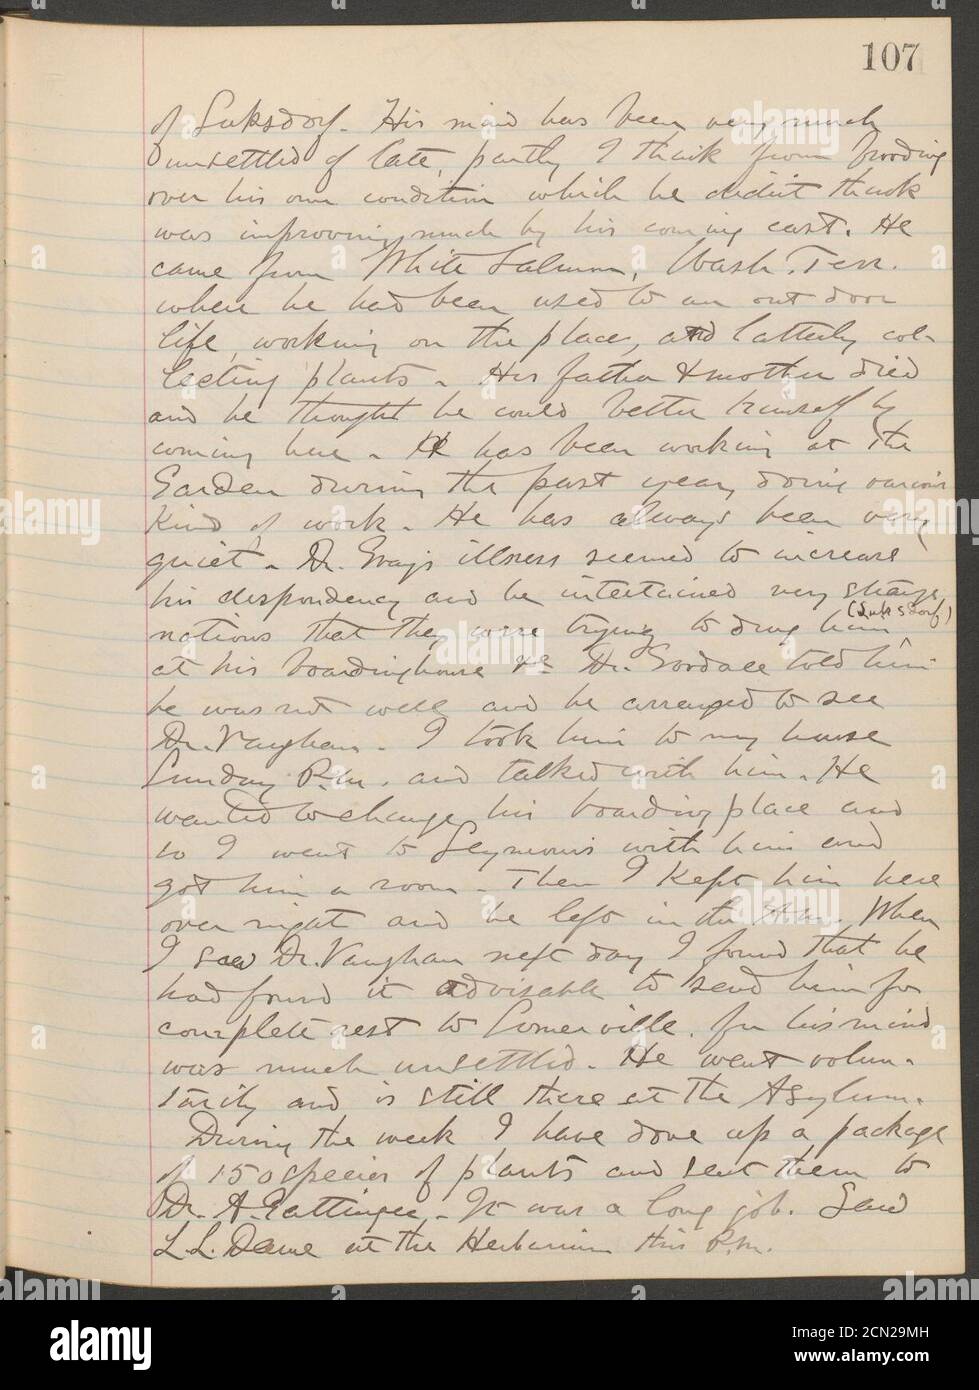 107
of Suksdorf. His mind has been very much
unsettled of late, partly I think from brooding
over his own condition which he didn't think
was improving much by his coming east. He
came from White Salmon, Wash. Terr.
where he had been used to an out door
life, working on the place, and latterly col-
lecting plants. His father & mother died
and he thought he could better himself by
coming here. He has been working at the
Garden during the past year, doing various
kind of work. He has always been very
quiet. Dr. Gray's illness seemed to increase
his despondency and he intertained very strange
notions that they were trying to drug him (Suksdorf)
at his boardinghouse &c. Dr. Goodale told him
he was not well and he arranged to see
Dr. Vaughan. I took him to my house
Sunday P.m. and talked with him. He
wanted to change his boarding place and
so I went to Seymour's with him and
got him a room. Then I kept him here
over night and he left in the A.m. When
I saw Dr. Vaughan next day I found that he
had found it advisable to send him for
complete rest to Somerville, for his mind
was much unsettled. He went volun-
tarily and is still there at the Asylum.
During the week I have done up a package
of 150 species of plants and sent them to
Dr. A. Gattinger. It was a long job. Saw
L. L. Dame at the Herbarium this P.m.
alamy
Image ID: 2CN29MH
www.alamy.com